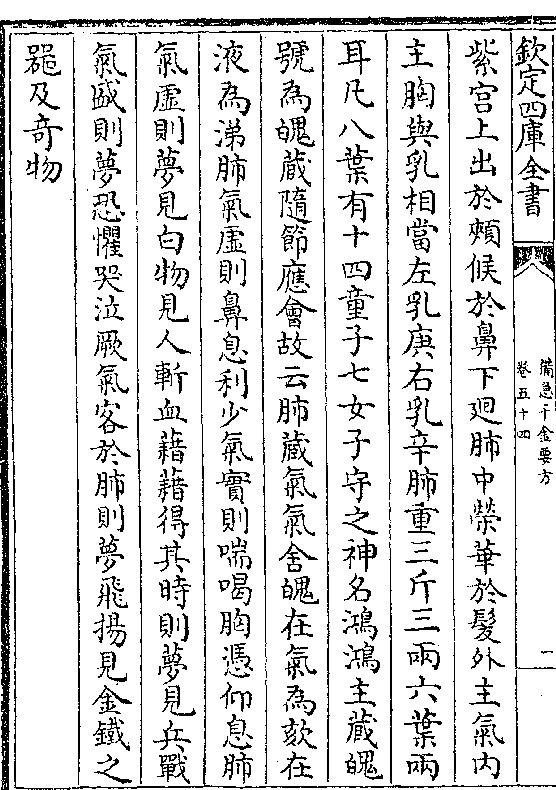 欽定四庫全書
備急千金要方
卷五十四
一
紫宫上出於頰候於鼻下廻肺中榮華於髮外主氣内
主胸與乳相當左乳庚右乳辛肺重三斤三兩六葉兩
耳凡八葉有十四童子七女子守之神名鴻鴻主藏魄
號為魄藏隨節應會故云肺藏氣氣舍魄在氣為欬在
液為涕肺氣虛則鼻息利少氣實則喘喝胸憑仰息肺
氣虛則夢見白物見人斬血藉藉得其時則夢見兵戰
氣盛則夢恐懼哭泣厥氣客於肺則夢飛揚見金鐵之
噐及奇物